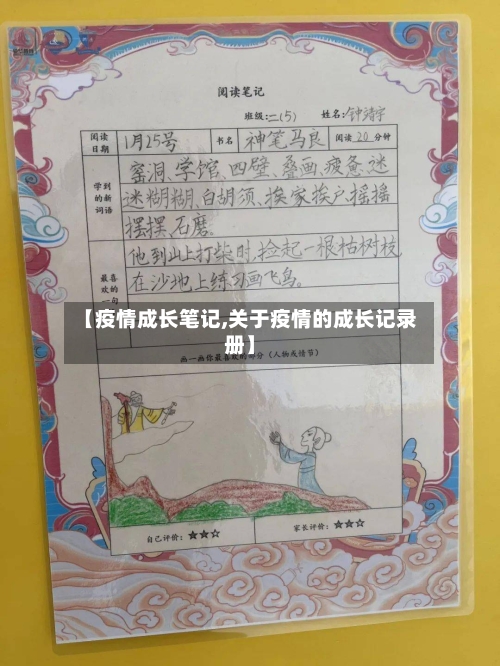 阅读笔记
班级:二(5) 姓名:钟靖宇
阅读日期 1月25号 书名 神笔马良 阅读 20 分钟
学到的新词语
窑洞、学馆、四壁、叠画、疲惫、迷
迷糊糊、白胡须、挨家挨户、摇摇
摆摆、石磨。
最喜欢的一句
他到山上打柴时,捡起一根枯树枝,
在沙地上练习画飞鸟。
【疫情成长笔记,关于疫情的成长记录
册】
画一画你最喜欢的部分(人物或情节)
自己评价:★★☆ 家长评价:★★☆☆